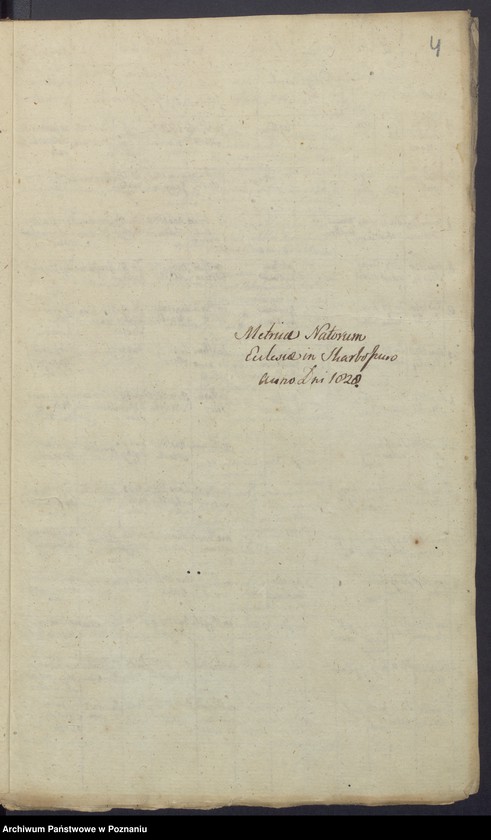 4
Metrica Natorum
Eclesiæ in Skarboszewo
Anno Dni 1828.
Archiwum Państwowe w Poznaniu